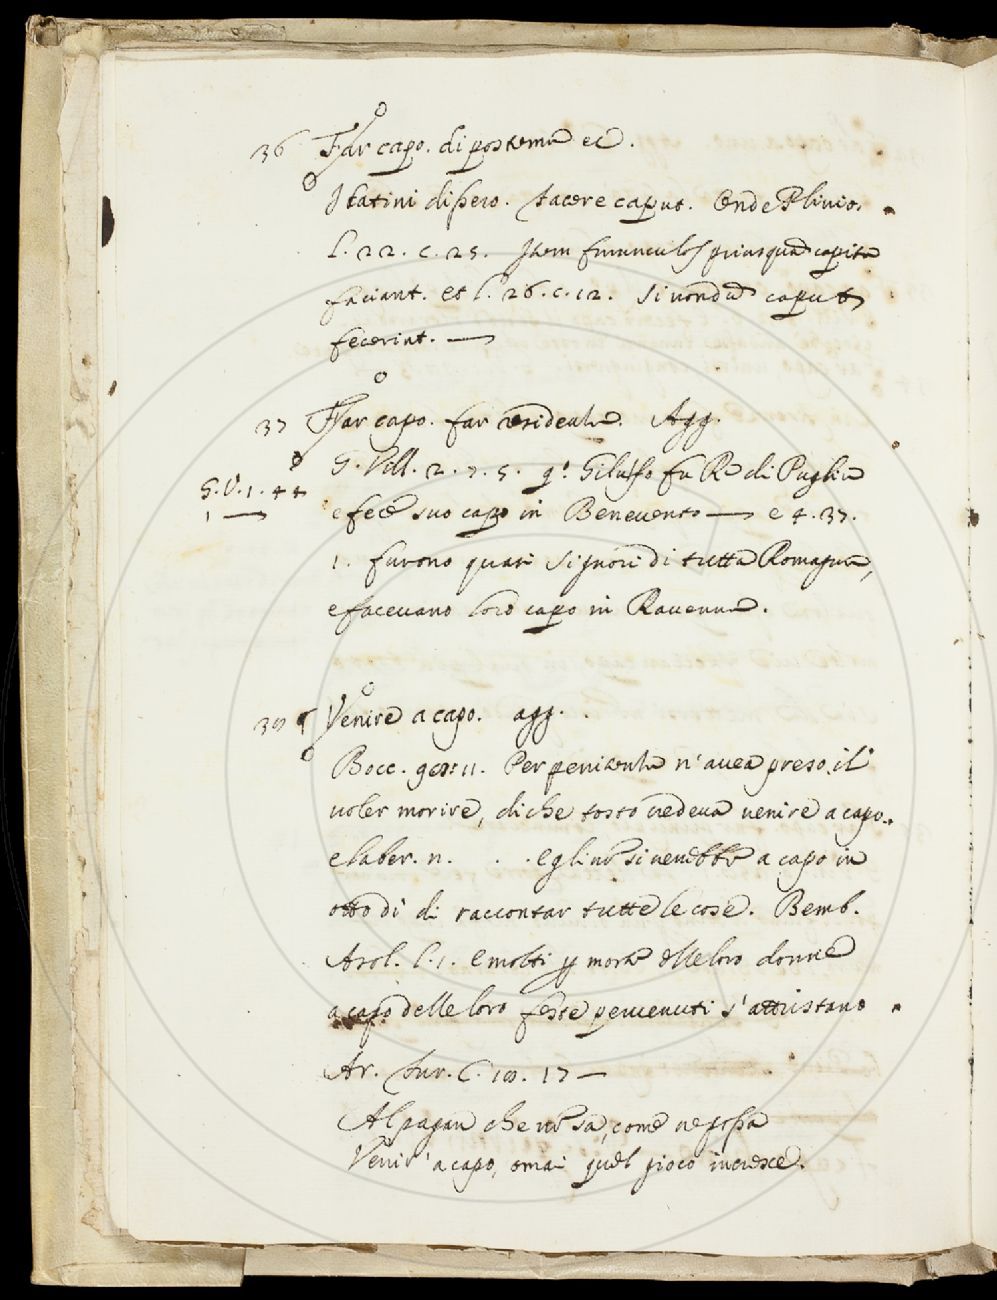 36 Far capo. di postema ec.
I latini dissero. facere caput. Onde Plinio.
l. 22. c. 25. Item furunculos priusquã capita
faciant. et l. 26. c. 12. Si nondũ caput
fecerint. —
37 Far capo. far residentia. Agg.
G. Vill. 2. 7. 5. Gisulfo fu Re di Puglia
G. V. 1. 44
1 —
e fece suo capo in Benevento — e 4. 37.
1. furono quasi Signori di tutta Romagna,
e facevano loro capo in Ravenna.
Venire a capo. agg.
Bocc. 11. Per penitentia n'avea preso, il
voler morire, di che tosto vedeva venire a capo.
e laber. n. . . Egli nõ si verrebbe a capo in
otto di di raccontar tutte le cose. Bemb.
Asol. l. 1. E molti p morte delle loro donne
a capo delle loro feste pervenuti s'attristano
Ar. fur. C. 17 —
Al pagan che nõ sa, come ne possa
Venir' a capo, omai quel gioco incresce.